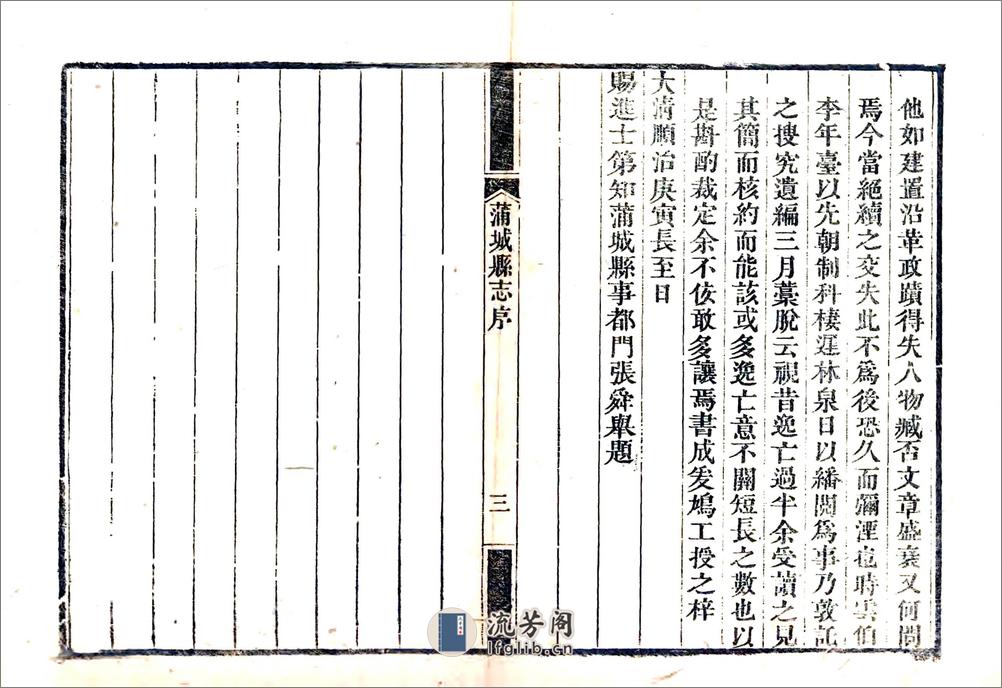 他如建置沿革政蹟得失人物臧否文章盛衰又何問
焉今當絕續之交失此不為後恐久而彌湮也時雲伯
李年臺以先朝制科棲遲林泉日以繙閱為事乃敦託
之搜究遺編三月藁脫云視昔逸亡過半余受讀之見
其簡而核約而能該或多逸亡意不關短長之數也以
是斟酌裁定余不佞敢多讓焉書成爰鳩工授之梓
大清順治庚寅長至日
賜進士第知蒲城縣事都門張舜舉題
蒲城縣志序
三
流芳阁
lfglib.cn